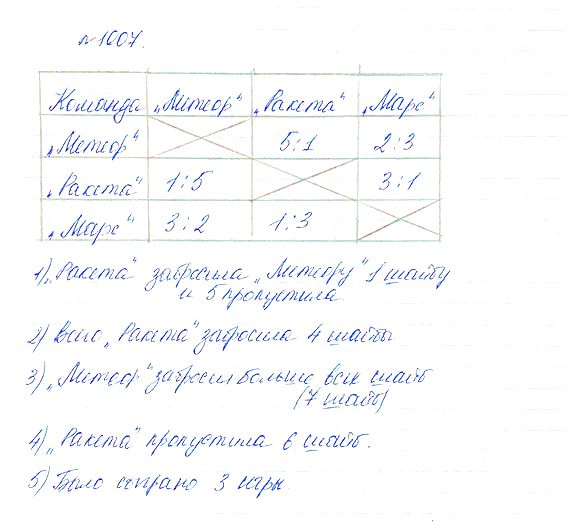 №1007.
Команда „Метеор“ „Ракета“ „Марс“
„Метеор“ 5:1 2:3
„Ракета“ 1:5 3:1
„Марс“ 3:2 1:3
1) „Ракета“ забросила „Метеору“ 1 шайбу
и 5 пропустила.
2) Всего „Ракета“ забросила 4 шайбы
3) „Метеор“ забросил больше всех шайб
(7 шайб)
4) „Ракета“ пропустила 6 шайб.
5) Было сыграно 3 игры